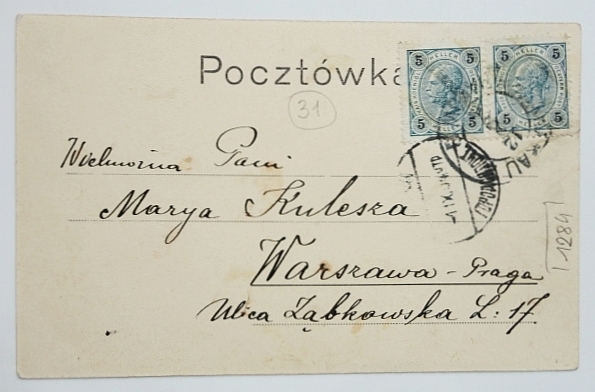 Pocztówka
5 HELLER 5
5 5
5 HELLER 5
5 5
31
Wielmożna Pani
Marya Kulesza
Warszawa - Praga
Ulica Ząbkowska L: 17.
1284